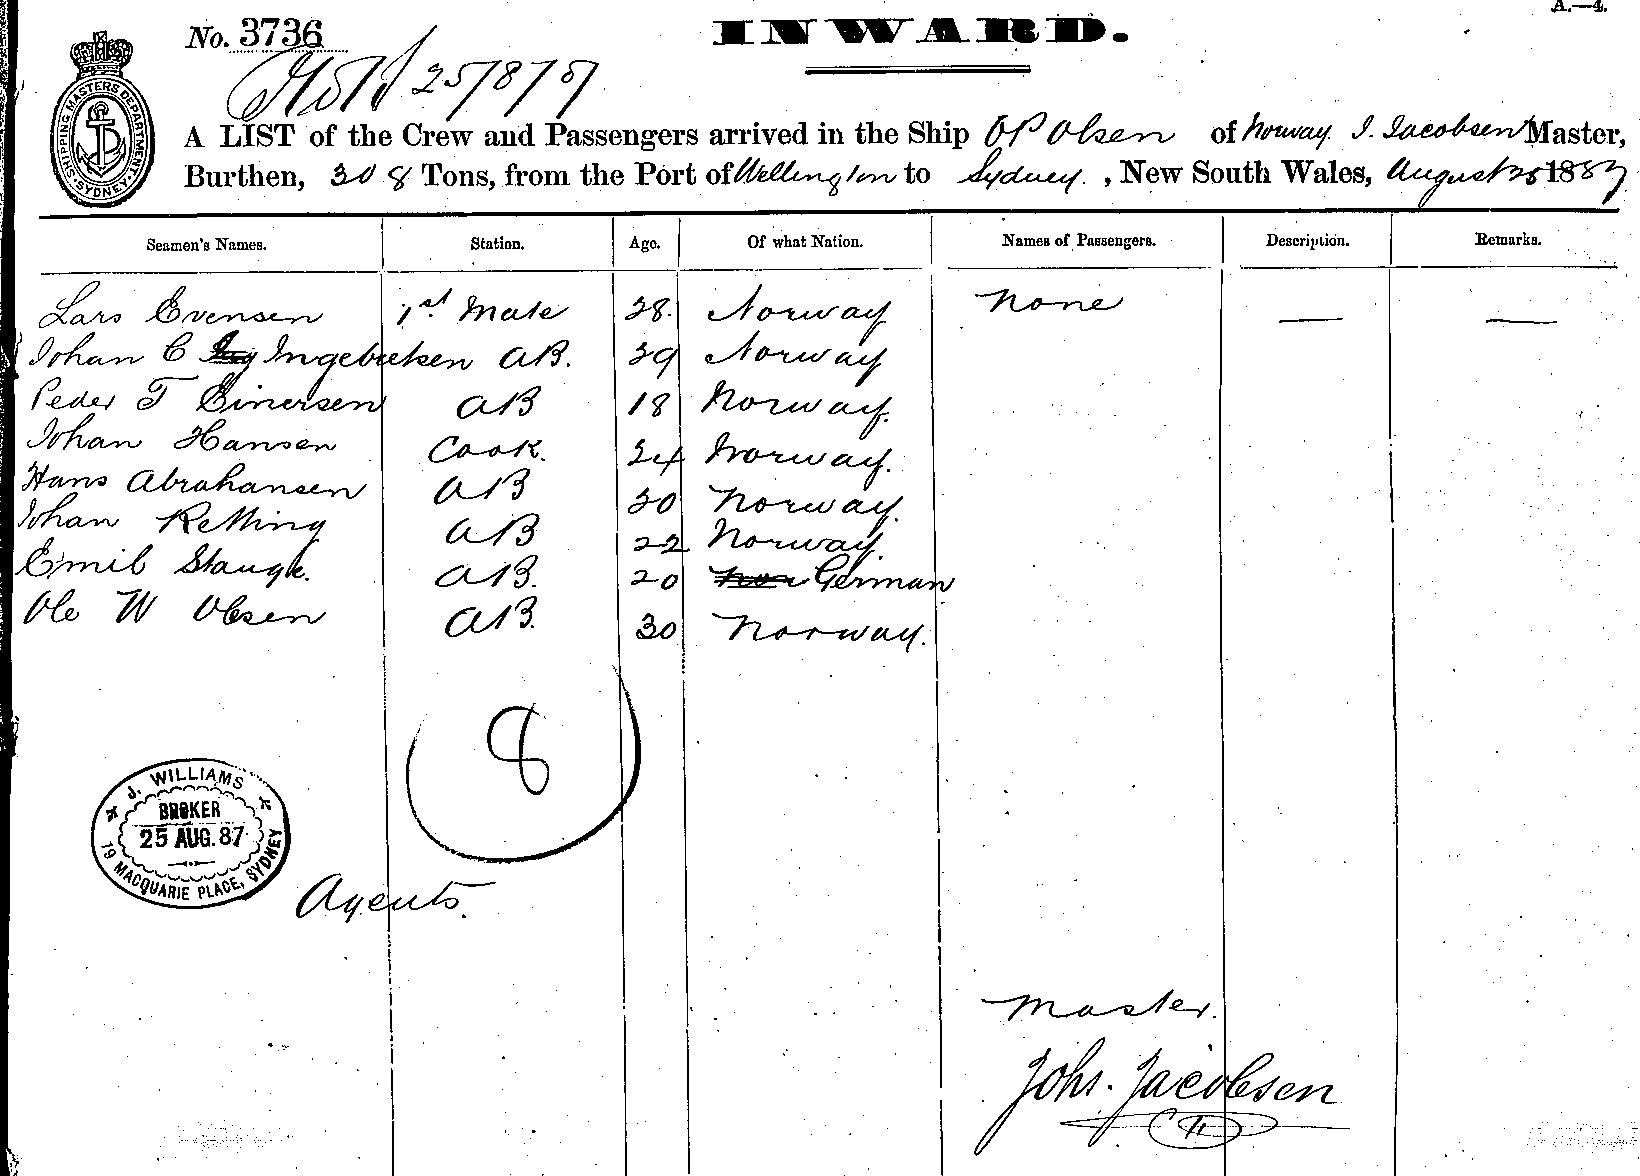 A.—4.
No. 3736
INWARD.
25/8/87
SHIPPING MASTERS DEPARTMENT. SYDNEY.
A LIST of the Crew and Passengers arrived in the Ship O P Olsen of Norway. J. Jacobsen Master,
Burthen, 308 Tons, from the Port of Wellington to Sydney., New South Wales, August 25 1887
Seamen's Names. Station. Age. Of what Nation. Names of Passengers. Description. Remarks.
Lars Evensen 1st Mate 28. Norway None — —
Johan C Ingebretsen AB. 29 Norway
Peder T Einersen AB 18 Norway.
Johan Hansen Cook. 24 Norway.
Hans Abrahansen AB 20 Norway.
Johan Retting AB 22 Norway.
Emil AB. 20 German
Ole W Olsen AB. 30 Norway.
8
J. WILLIAMS
BROKER
25 AUG. 87
19 MACQUARIE PLACE, SYDNEY
Agents.
Master.
Johs. Jacobsen